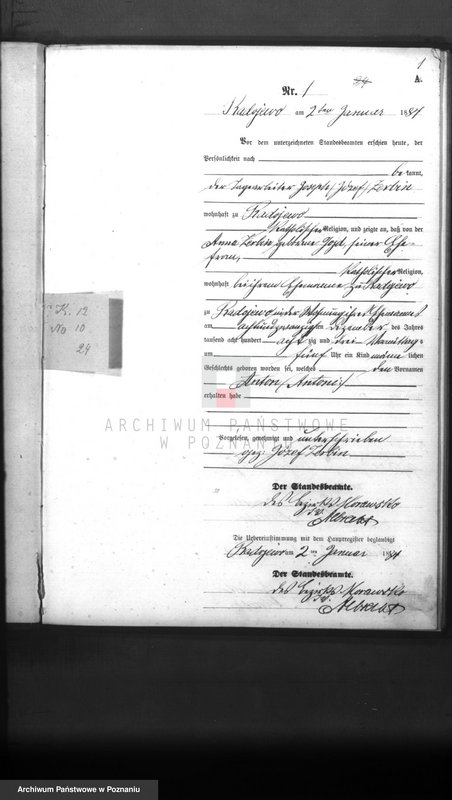 1
24
A.
Nr. 1
Radojewo am 2ten Januar 1884
Vor dem unterzeichneten Standesbeamten erschien heute, der
Persönlichkeit nach
be kannt,
der Tagearbeiter Joseph (Józef)
wohnhaft zu Radojewo
katholischer Religion, und zeigte an, daß von der
Anna geborene seiner Ehe-
frau,
katholischer Religion,
wohnhaft bei ihrem Ehemanne zu Radojewo
zu Radojewo in der Wohnung ihres Ehemannes
am achtundzwanzigsten Dezember des Jahres
tausend acht hundert acht zig und drei Vormittags
um fünf Uhr ein Kind männ lichen
Geschlechts geboren worden sei, welches den Vornamen
Anton (Antoni)
erhalten habe
Vorgelesen, genehmigt und unterschrieben
gez. Józef
Der Standesbeamte.
des Bezirks Morawsko
Die Uebereinstimmung mit dem Hauptregister beglaubigt
Radojewo am 2ten Januar 1884
Der Standesbeamte.
des Bezirks Morawsko
K. 12
No 10
24
ARCHIWUM PAŃSTWOWE
W POZNANIU
Archiwum Państwowe w Poznaniu